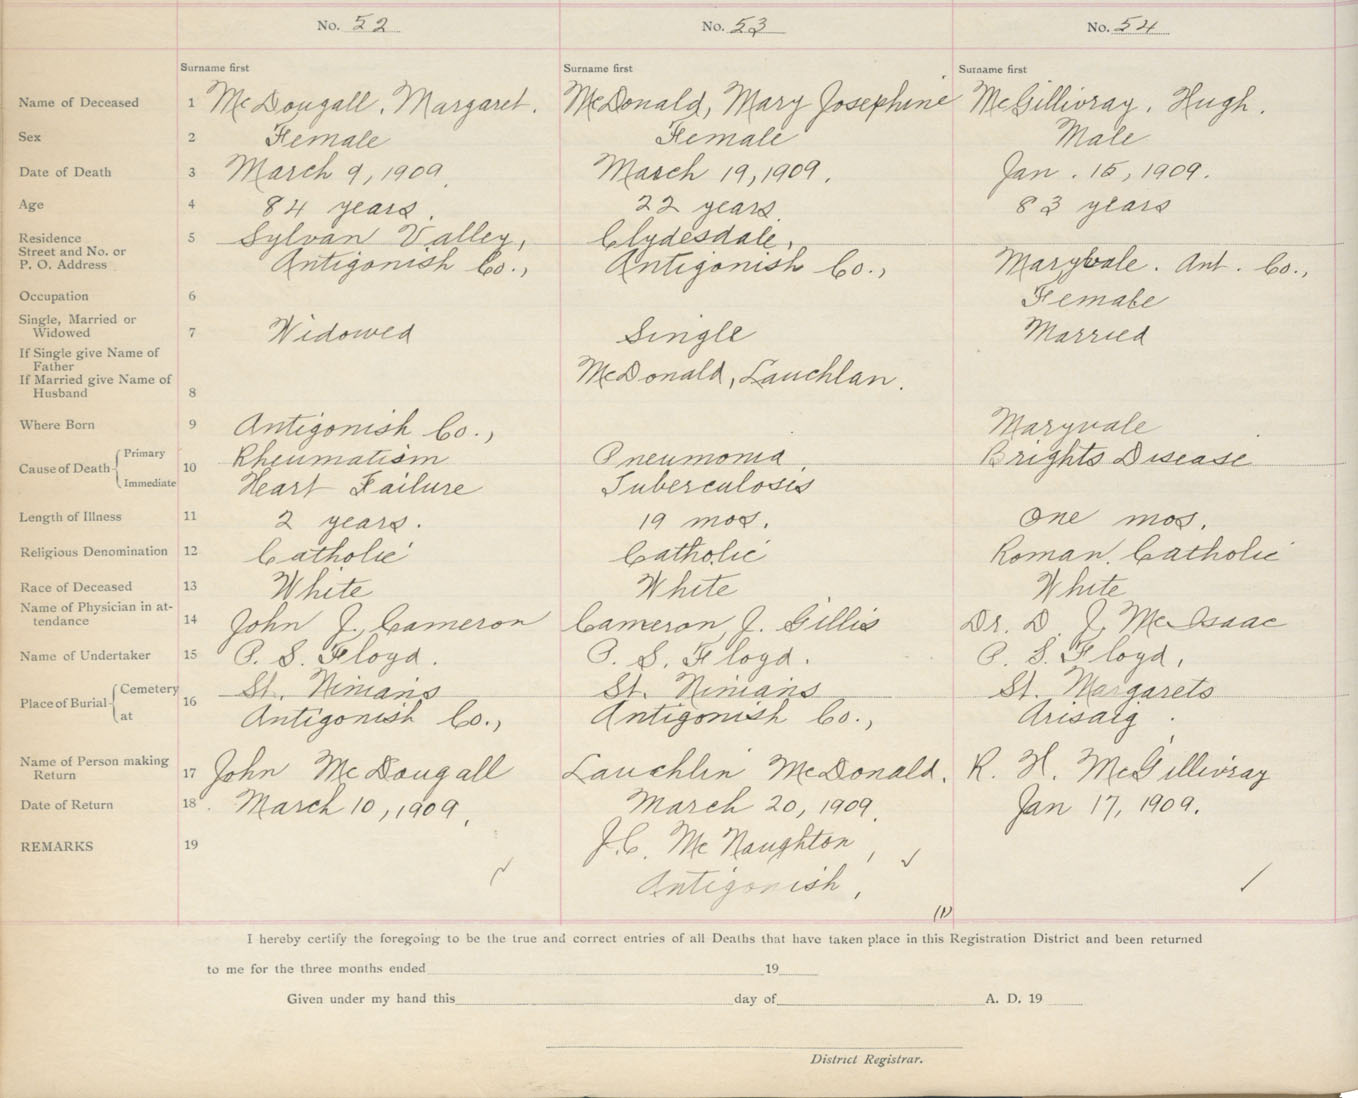 No. 52 No. 53 No. 54
Surname first Surname first Surname first
Name of Deceased 1 McDougall, Margaret. McDonald, Mary Josephine McGillivray, Hugh.
Sex 2 Female Female Male
Date of Death 3 March 9, 1909. March 19, 1909. Jan. 15, 1909.
Age 4 84 years. 22 years. 83 years
Residence 5 Sylvan Valley, Clydesdale,
Street and No. or
P. O. Address Antigonish Co., Antigonish Co., Maryvale. Ant. Co.,
Occupation 6 Female
Single, Married or
Widowed 7 Widowed Single Married
If Single give Name of
Father
If Married give Name of McDonald, Lauchlan.
Husband 8
Where Born 9 Antigonish Co., Maryvale
Cause of Death Primary 10 Rheumatism Pneumonia. Brights Disease
Immediate Heart Failure Tuberculosis
Length of Illness 11 2 years. 19 mos. One mos.
Religious Denomination 12 Catholic Catholic Roman Catholic
Race of Deceased 13 White White White
Name of Physician in at-
tendance 14 John J. Cameron Cameron, J. Gillis Dr. D. J. McIsaac
Name of Undertaker 15 P. S. Floyd. P. S. Floyd. P. S. Floyd,
Place of Burial Cemetery 16 St. Ninians St. Ninians St. Margarets
at Antigonish Co., Antigonish Co., Arisaig.
Name of Person making
Return 17 John McDougall Lauchlin McDonald. R. H. McGillivray
Date of Return 18 March 10, 1909. March 20, 1909. Jan 17, 1909.
REMARKS 19 J.C. McNaughton, ✓
✓ Antigonish, /
(1)
I hereby certify the foregoing to be the true and correct entries of all Deaths that have taken place in this Registration District and been returned
to me for the three months ended 19
Given under my hand this day of A. D. 19
District Registrar.